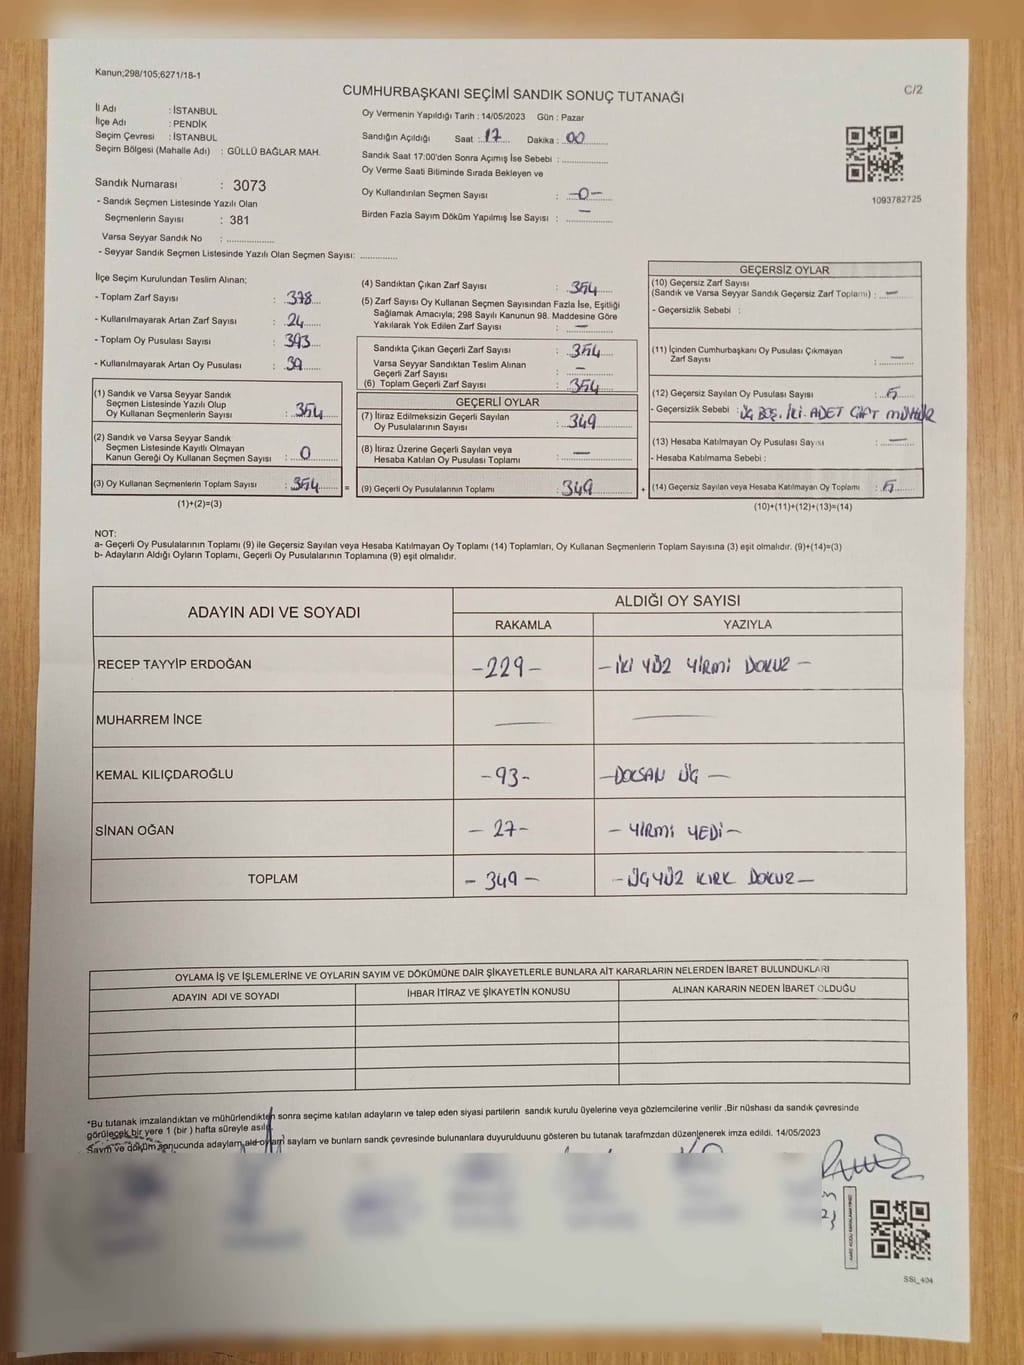 Kanun;298/105;6271/18-1
C/2
CUMHURBAŞKANI SEÇİMİ SANDIK SONUÇ TUTANAĞI
İl Adı : İSTANBUL
İlçe Adı : PENDİK
Seçim Çevresi : İSTANBUL
Seçim Bölgesi (Mahalle Adı) : GÜLLÜ BAĞLAR MAH.
Sandık Numarası : 3073
- Sandık Seçmen Listesinde Yazılı Olan
Seçmenlerin Sayısı : 381
Varsa Seyyar Sandık No : ..................
- Seyyar Sandık Seçmen Listesinde Yazılı Olan Seçmen Sayısı: ..............
Oy Vermenin Yapıldığı Tarih : 14/05/2023 Gün : Pazar
Sandığın Açıldığı Saat : 17 Dakika : 00
Sandık Saat 17:00'den Sonra Açımış İse Sebebi : ..............
Oy Verme Saati Bitiminde Sırada Bekleyen ve
Oy Kullandırılan Seçmen Sayısı : -0-
Birden Fazla Sayım Döküm Yapılmış İse Sayısı : —
1093782725
İlçe Seçim Kurulundan Teslim Alınan;
- Toplam Zarf Sayısı : 378
- Kullanılmayarak Artan Zarf Sayısı : 24
- Toplam Oy Pusulası Sayısı : 393
- Kullanılmayarak Artan Oy Pusulası : 39
(1) Sandık ve Varsa Seyyar Sandık
Seçmen Listesinde Yazılı Olup
Oy Kullanan Seçmenlerin Sayısı : 354
(2) Sandık ve Varsa Seyyar Sandık
Seçmen Listesinde Kayıtlı Olmayan
Kanun Gereği Oy Kullanan Seçmen Sayısı : 0
(3) Oy Kullanan Seçmenlerin Toplam Sayısı : 354 =
(1)+(2)=(3)
(4) Sandıktan Çıkan Zarf Sayısı : 354
(5) Zarf Sayısı Oy Kullanan Seçmen Sayısından Fazla İse, Eşitliği
Sağlamak Amacıyla; 298 Sayılı Kanunun 98. Maddesine Göre
Yakılarak Yok Edilen Zarf Sayısı : —
Sandıkta Çıkan Geçerli Zarf Sayısı : 354
Varsa Seyyar Sandıktan Teslim Alınan
Geçerli Zarf Sayısı : —
(6) Toplam Geçerli Zarf Sayısı : 354
GEÇERLİ OYLAR
(7) İtiraz Edilmeksizin Geçerli Sayılan
Oy Pusulalarının Sayısı : 349
(8) İtiraz Üzerine Geçerli Sayılan veya
Hesaba Katılan Oy Pusulası Toplamı : —
(9) Geçerli Oy Pusulalarının Toplamı : 349 +
GEÇERSİZ OYLAR
(10) Geçersiz Zarf Sayısı
(Sandık ve Varsa Seyyar Sandık Geçersiz Zarf Toplamı) : —
- Geçersizlik Sebebi :
(11) İçinden Cumhurbaşkanı Oy Pusulası Çıkmayan
Zarf Sayısı : —
(12) Geçersiz Sayılan Oy Pusulası Sayısı : 5
- Geçersizlik Sebebi : ÜÇ BOŞ. İKİ. ADET ÇİFT MÜHÜR
(13) Hesaba Katılmayan Oy Pusulası Sayısı : —
- Hesaba Katılmama Sebebi :
(14) Geçersiz Sayılan veya Hesaba Katılmayan Oy Toplamı : 5
(10)+(11)+(12)+(13)=(14)
NOT:
a- Geçerli Oy Pusulalarının Toplamı (9) ile Geçersiz Sayılan veya Hesaba Katılmayan Oy Toplamı (14) Toplamları, Oy Kullanan Seçmenlerin Toplam Sayısına (3) eşit olmalıdır. (9)+(14)=(3)
b- Adayların Aldığı Oyların Toplamı, Geçerli Oy Pusulalarının Toplamına (9) eşit olmalıdır.
ADAYIN ADI VE SOYADI
ALDIĞI OY SAYISI
RAKAMLA YAZIYLA
RECEP TAYYİP ERDOĞAN -229- -İKİ YÜZ YİRMİ DOKUZ-
MUHARREM İNCE — —
KEMAL KILIÇDAROĞLU -93- -DOKSAN ÜÇ-
SİNAN OĞAN -27- -YİRMİ YEDİ-
TOPLAM -349- -ÜÇ YÜZ KIRK DOKUZ-
OYLAMA İŞ VE İŞLEMLERİNE VE OYLARIN SAYIM VE DÖKÜMÜNE DAİR ŞİKAYETLERLE BUNLARA AİT KARARLARIN NELERDEN İBARET BULUNDUKLARI
ADAYIN ADI VE SOYADI İHBAR İTİRAZ VE ŞİKAYETİN KONUSU ALINAN KARARIN NEDEN İBARET OLDUĞU
*Bu tutanak imzalandıktan ve mühürlendikten sonra seçime katılan adayların ve talep eden siyasi partilerin sandık kurulu üyelerine veya gözlemcilerine verilir .Bir nüshası da sandık çevresinde
görülecek bir yere 1 (bir ) hafta süreyle asılır.
Sayım ve döküm sonucunda adayların ald oyların sayların ve bunların sandk çevresinde bulunanlara duyurulduunu gösteren bu tutanak tarafmzdan düzenlenerek imza edildi. 14/05/2023
SSI_404